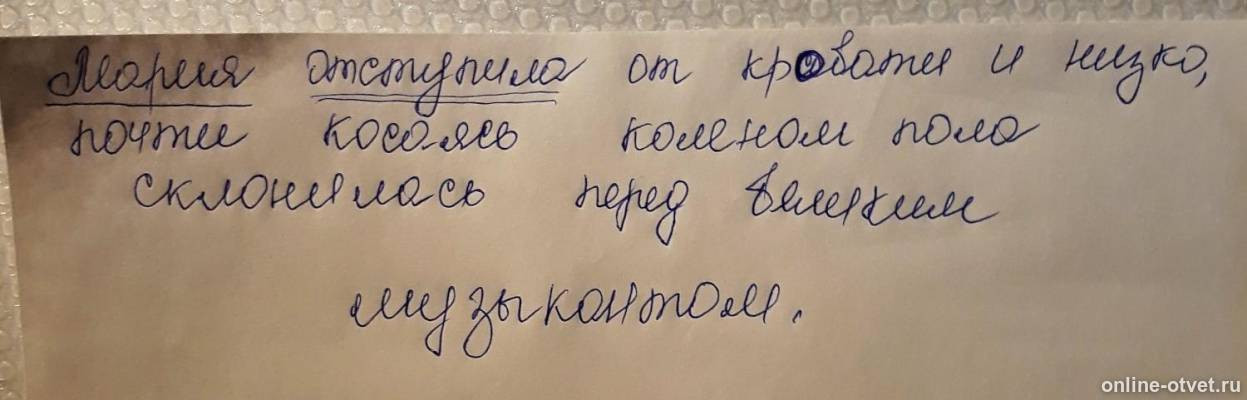 Мария отступила от кровати и низко,
почти косаясь коленом пола
склонилась перед великим
музыкантом.
online-otvet.ru